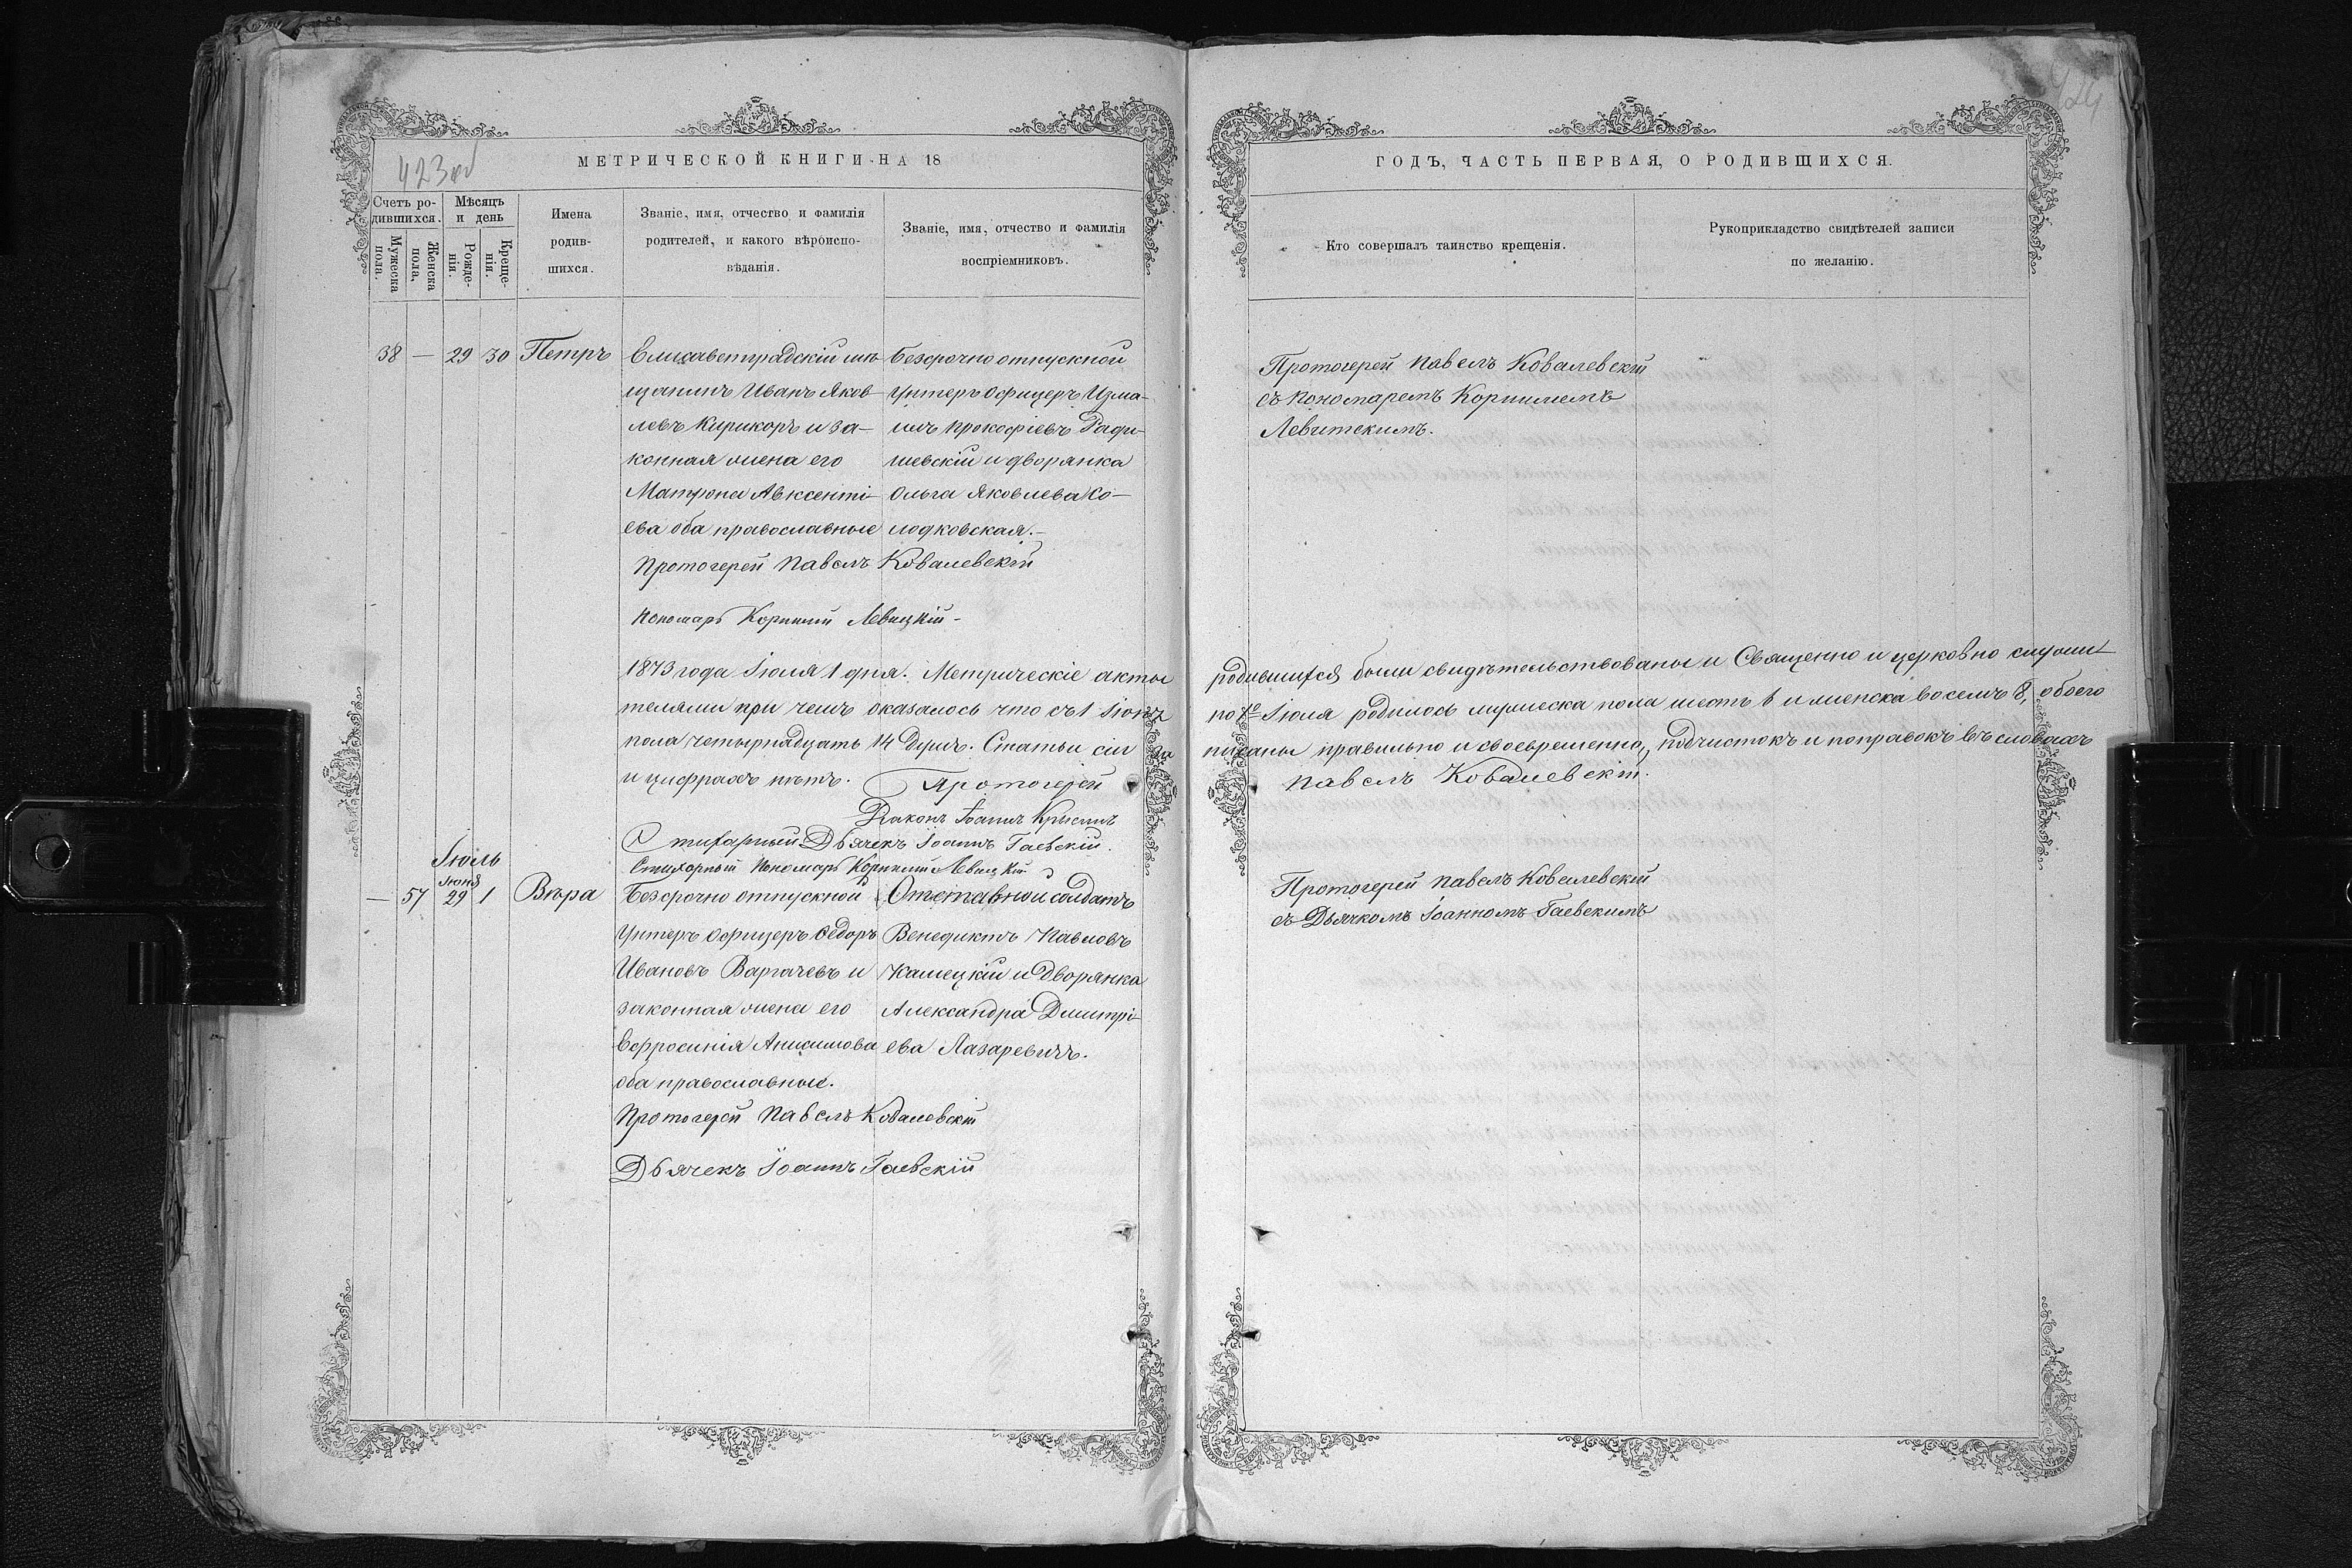 423 об
МЕТРИЧЕСКОЙ КНИГИ НА 18
Счетъ ро-
дившихся.
Мужеска
пола.
Женска
пола.
Мѣсяцъ
и день
Рожде-
нія.
Креще-
нія.
Имена
родив-
шихся.
Званіе, имя, отчество и фамилія
родителей, и какого вѣроиспо-
вѣданія.
Званіе, имя, отчество и фамилія
воспріемниковъ.
38 — 29 30 Петръ
Елисаветградскій мѣ-
щанинъ Иванъ Яков-
левъ Кирикоръ и за-
конная жена его
Матрона Авксенті-
ева оба православные
Безсрочно отпускной
Унтеръ Офицеръ Изма-
илъ Прокофіевъ
шевскій и дворянка
Ольга Яковлева Со-
лодковская.—
Протоіерей Павелъ Ковалевскій
Пономарь Корнилій Левицкій-
1873 года Іюля 1 дня. Метрическіе акты
телями при чемъ оказалось что съ 1 Іюня
пола четырнадцать 14 душъ. Статьи сіи за
и цифрахъ нѣтъ. Протоіерей
Діаконъ Іоаннъ
Стихарный Дьячекъ Іоаннъ Гаевскій.
Стихарный Пономарь Корнилій Левицкій
Іюль
— 57 Іюня 29 1 Вѣра
Безсрочно отпускной
Унтеръ Офицеръ Ѳедоръ
Ивановъ Варгачевъ и
законная жена его
Ефросинія Анисимова
оба православные.
Отставной солдатъ
Венедиктъ Павловъ
Калецкій и Дворянка
Александра Димитрі-
ева Лазаревичъ.
Протоіерей Павелъ Ковалевскій
Дьячекъ Іоаннъ Гаевскій
424
ГОДЪ, ЧАСТЬ ПЕРВАЯ, О РОДИВШИХСЯ.
Кто совершалъ таинство крещенія.
Рукоприкладство свидѣтелей записи
по желанію.
Протоіерей Павелъ Ковалевскій
съ Пономаремъ Корниліемъ
Левитскимъ.
родившихся были свидѣтельствованы и Священно и церковно служи-
по 1е Іюля родилось мужеска пола шесть 6 и женска восемь 8, обоего
писаны правильно и своевременно, подчистокъ и поправокъ въ словахъ
Павелъ Ковалевскій.
Протоіерей Павелъ Ковалевскій
съ Дьячкомъ Іоанномъ Гаевскимъ